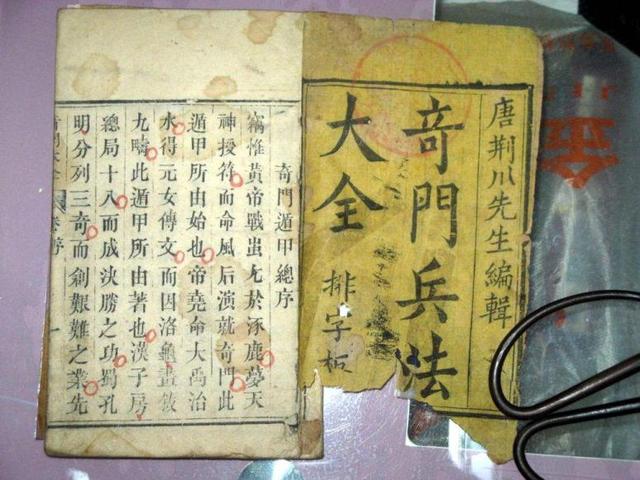 唐荆川先生編輯
竒門兵法
大全
排字板
奇門遁甲總序
竊惟黃帝戰蚩尤於涿鹿夢天
神授符而命風后演就奇門此
遁甲所由始也帝堯命大禹治
水得元女傳文而因洛龜畫敘
九疇此遁甲所由著也漢子房
總局十八而成決勝之功蜀孔
明分列三奇而創艱難之業先